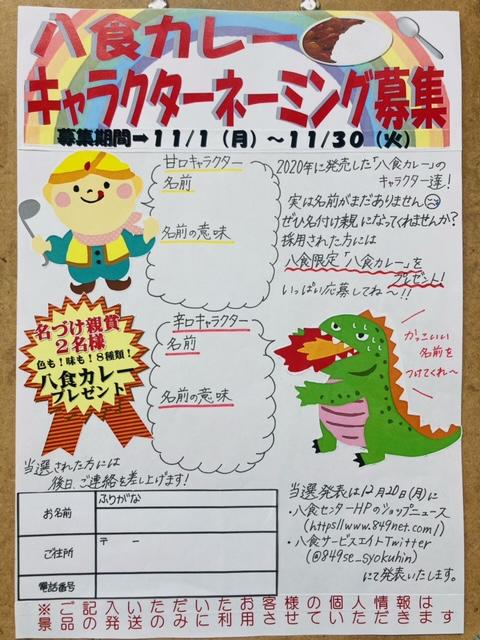 八食カレー
キャラクターネーミング募集
募集期間➡11/1（月）～11/30（火）
甘口キャラクター
名前
名前の意味
2020年に発売した「八食カレー」の
キャラクター達！
実は名前がまだありません
ぜひ名付け親になってくれませんか？
採用された方には
八食限定「八食カレー」を
プレゼント！
いっぱい応募してね～!!
名づけ親賞
2名様
色も！味も！8種類！
八食カレー
プレゼント
辛口キャラクター
名前
名前の意味
かっこいい
名前を
つけてくれ～
当選された方には
後日、ご連絡を差し上げます！
お名前
ふりがな
ご住所
〒　－
電話番号
当選発表は12月20日(月)に
・八食センターHPのショップニュース
(https//www.849net.com/)
・八食サービスエイトTwitter
(@849se_syokuhin)
にて発表いたします。
※ご記入いただいたお客様の個人情報は
景品の発送のみに利用させていただきます